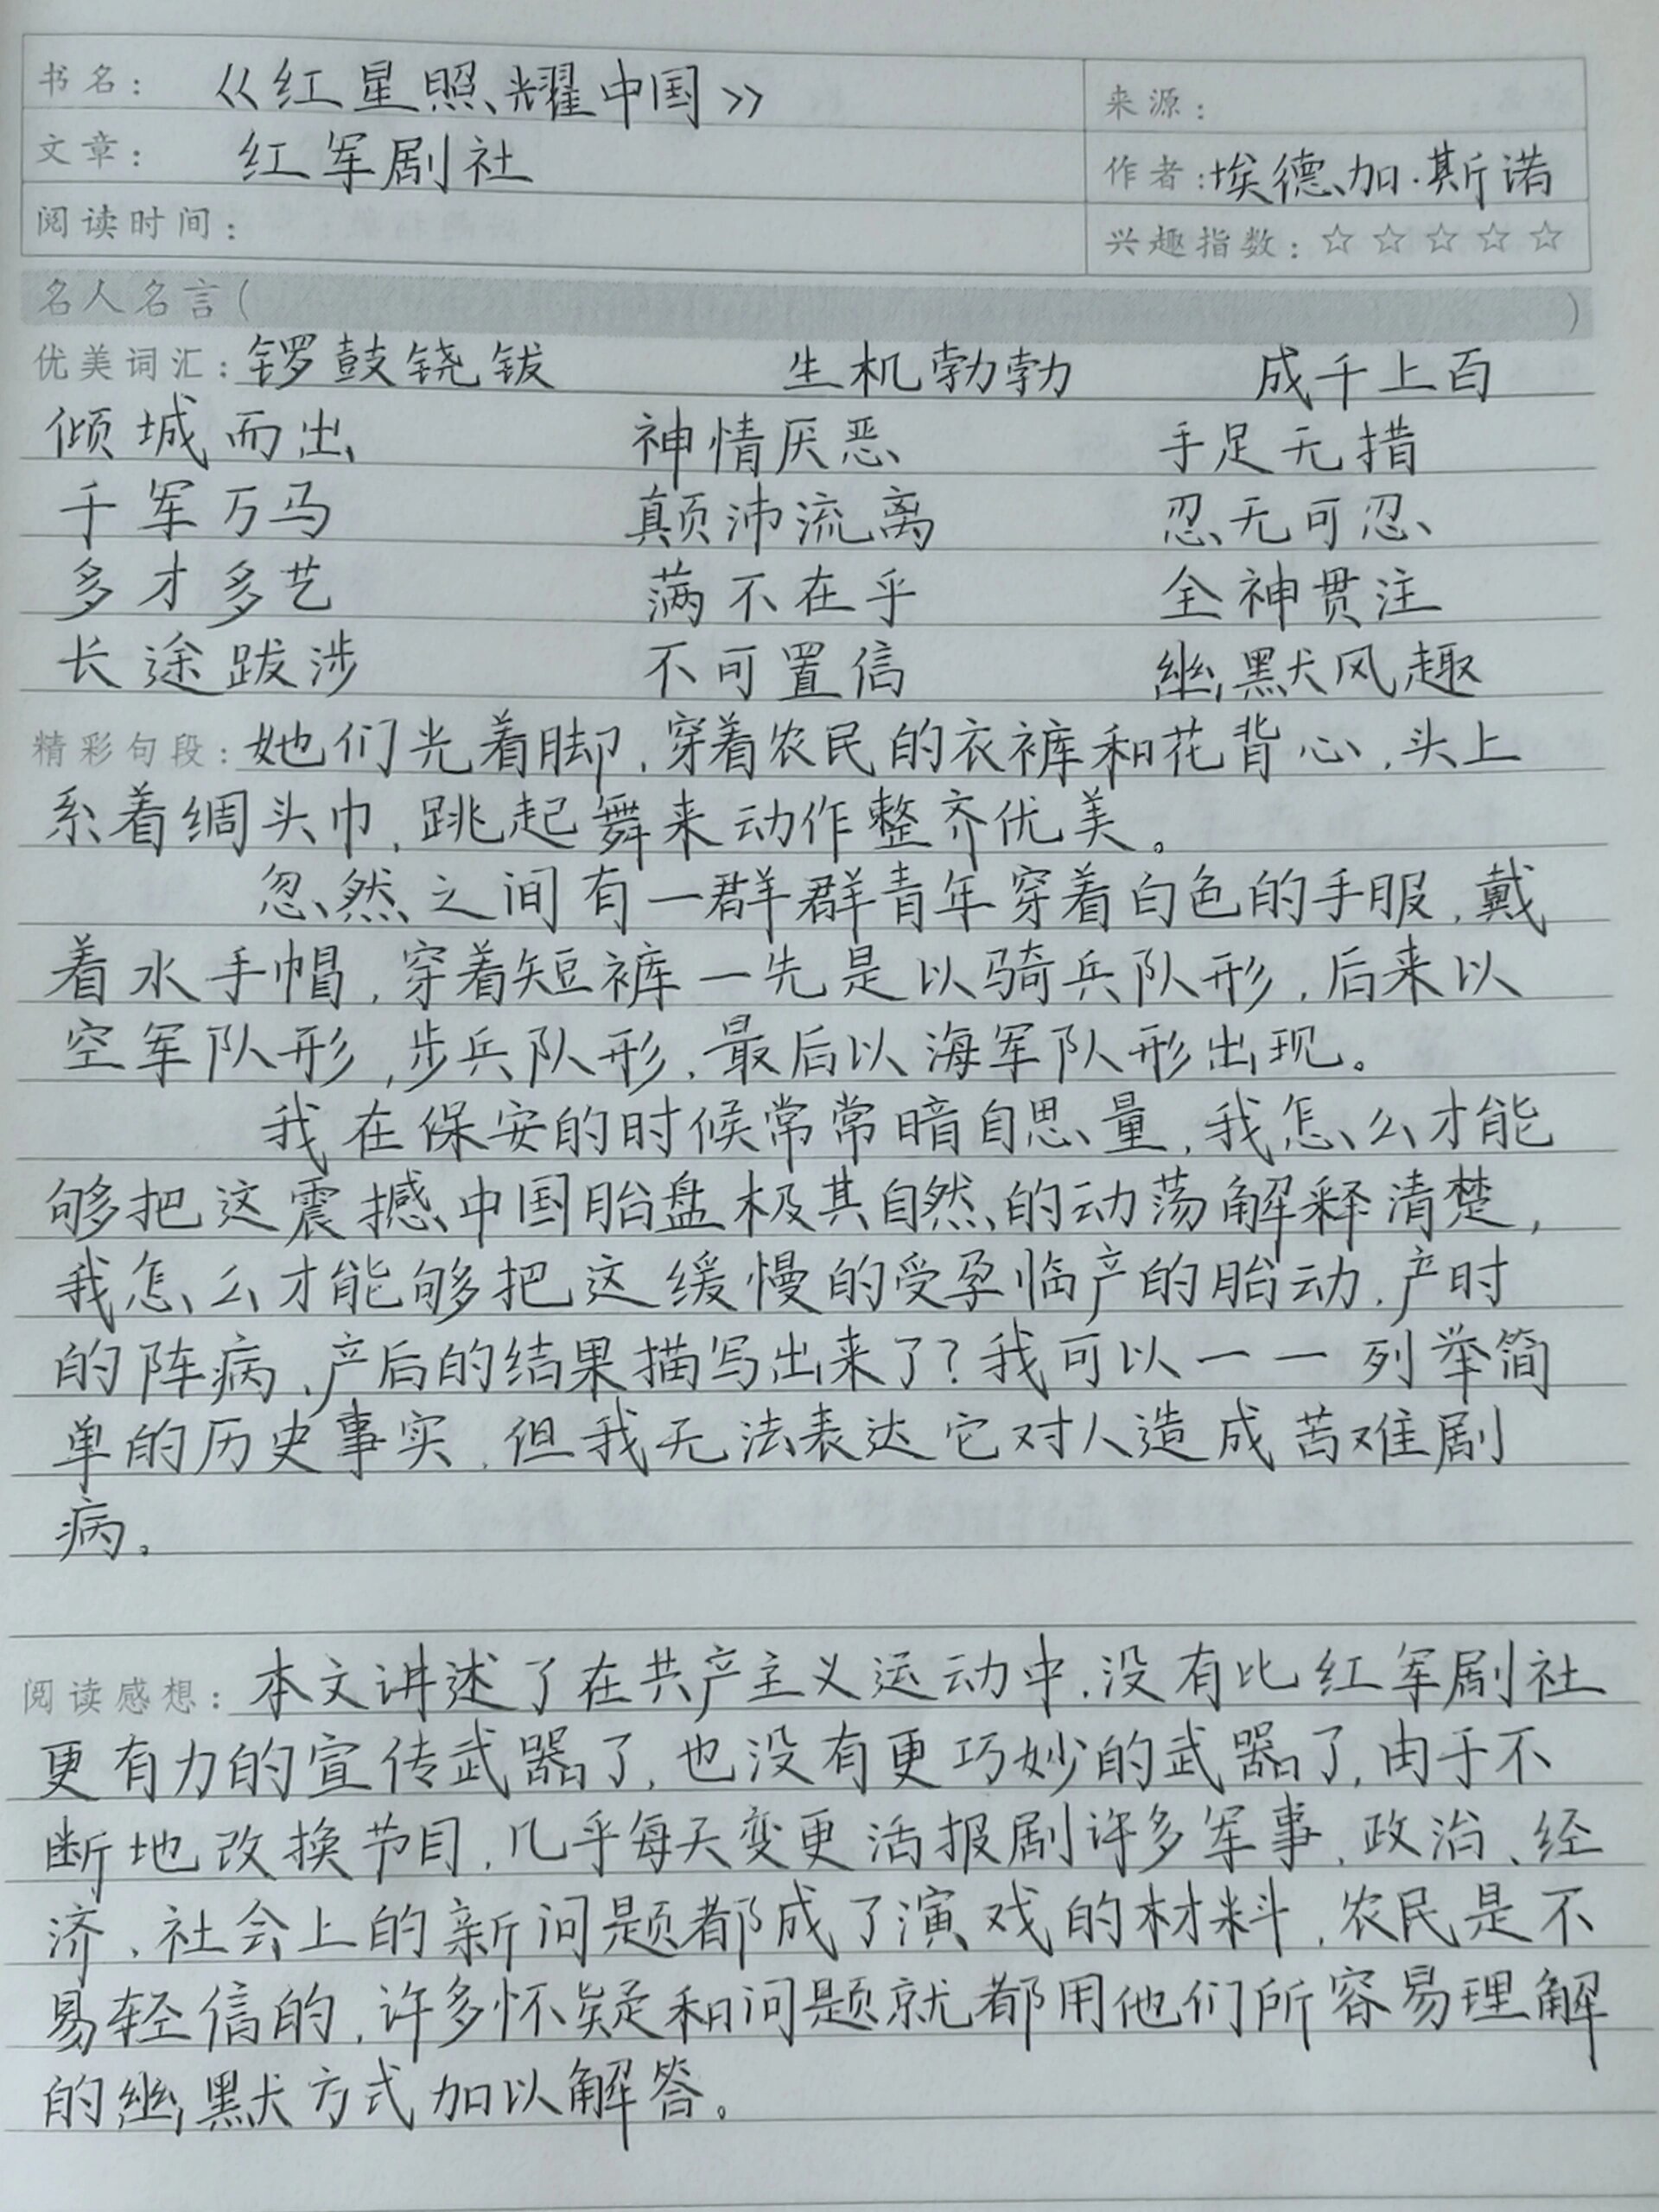 书名： 《红星照耀中国》
来源：
文章： 红军剧社
作者：埃德加·斯诺
阅读时间：
兴趣指数：☆☆☆☆☆
名人名言（ ）
优美词汇：锣鼓铙钹 生机勃勃 成千上百
倾城而出 神情厌恶 手足无措
千军万马 颠沛流离 忍无可忍
多才多艺 满不在乎 全神贯注
长途跋涉 不可置信 幽默风趣
精彩句段：她们光着脚，穿着农民的衣裤和花背心，头上
系着绸头巾，跳起舞来动作整齐优美。
忽然之间有一群群青年穿着白色的手服，戴
着水手帽，穿着短裤一先是以骑兵队形，后来以
空军队形，步兵队形，最后以海军队形出现。
我在保安的时候常常暗自思量，我怎么才能
够把这震撼中国胎盘极其自然的动荡解释清楚，
我怎么才能够把这缓慢的受孕临产的胎动，产时
的阵病、产后的结果描写出来了？我可以一一列举简
单的历史事实，但我无法表达它对人造成苦难剧
病。
阅读感想：本文讲述了在共产主义运动中，没有比红军剧社
更有力的宣传武器了，也没有更巧妙的武器了，由于不
断地改换节目，几乎每天变更活报剧许多军事、政治、经
济、社会上的新问题都成了演戏的材料，农民是不
易轻信的，许多怀疑和问题就都用他们所容易理解
的幽默方式加以解答。